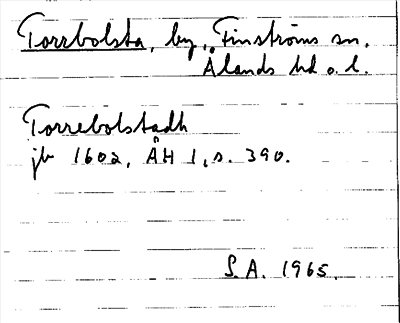 Torrbolsta, by, Finströms sn,
Ålands hd o. l.
Torrebolstadh
jb 1602, ÅH 1, s. 390.
S.A. 1965.